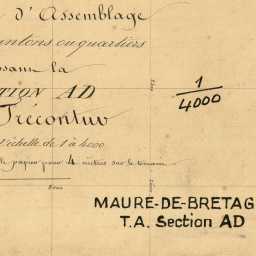 d'Assemblage
ntons ou quartiers
osant la
TION AD
Trécontuv
l'échelle de 1 à 4000
le papier pour 4 mètres sur le terrain
1
4000
MAURE-DE-BRETAG
T.A. Section AD